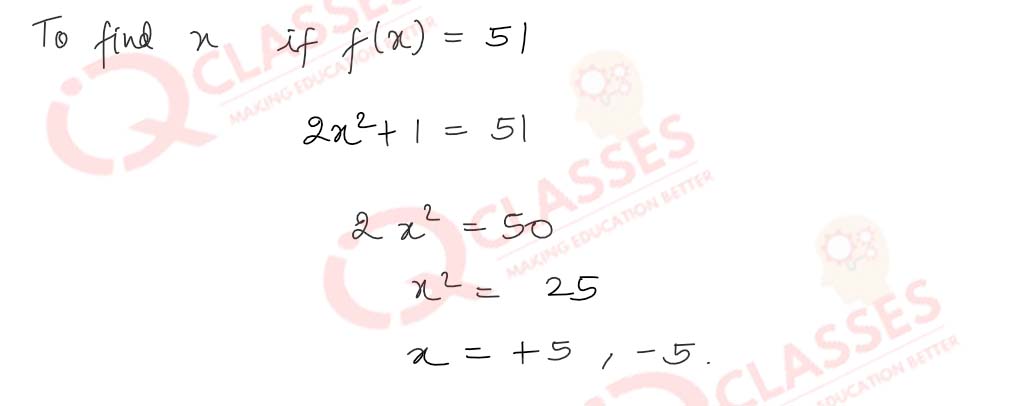 To find x if f(x) = 51
2x² + 1 = 51
2x² = 50
x² = 25
x = +5, -5.
CLASSES
MAKING EDUCATION BETTER
CLASSES
MAKING EDUCATION BETTER
CLASSES
EDUCATION BETTER